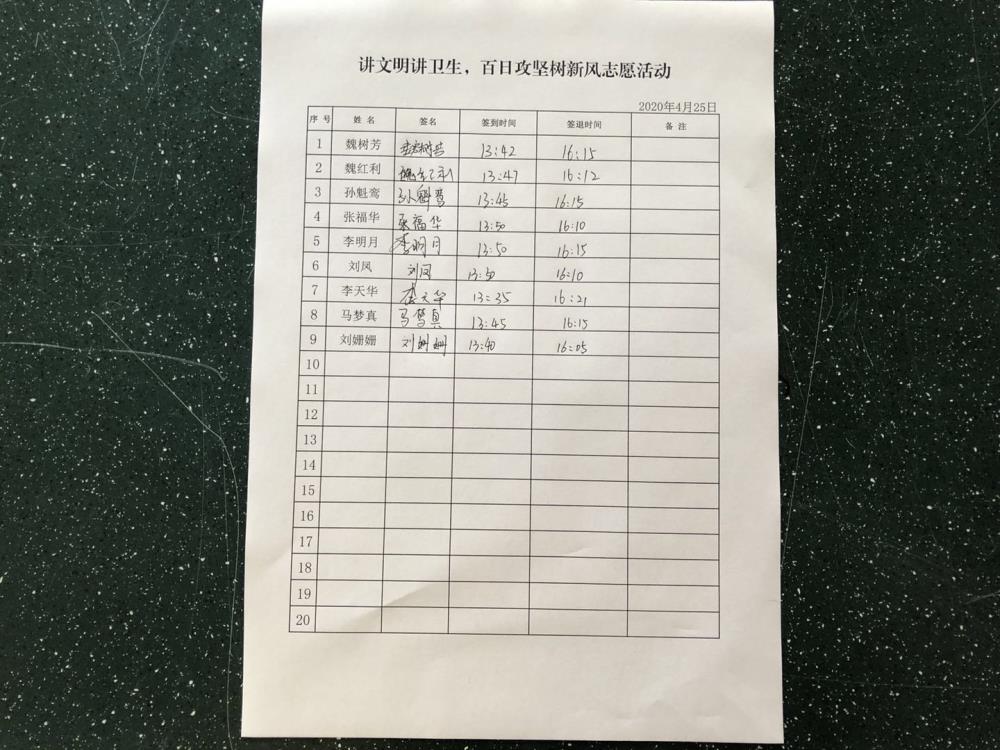 讲文明讲卫生，百日攻坚树新风志愿活动
2020年4月25日
序号 姓名 签名 签到时间 签退时间 备注
1 魏树芳 魏树芳 13:42 16:15
2 魏红利 魏红利 13:47 16:12
3 孙魁鸾 孙魁鸾 13:45 16:15
4 张福华 张福华 13:50 16:10
5 李明月 李明月 13:50 16:15
6 刘凤 刘凤 13:50 16:10
7 李天华 李天华 13:35 16:21
8 马梦真 马梦真 13:45 16:15
9 刘姗姗 刘姗姗 13:40 16:05
10
11
12
13
14
15
16
17
18
19
20